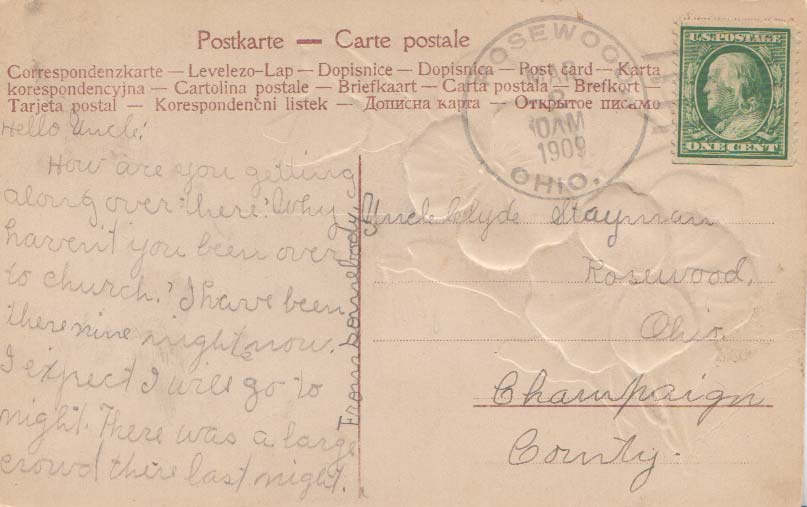 Postkarte — Carte postale
Correspondenzkarte — Levelezo-Lap — Dopisnice — Dopisnica — Post card — Karta
korespondencyjna — Cartolina postale — Briefkaart — Carta postala — Brefkort —
Tarjeta postal — Korespondenčni listek — Дописна карта — Открытое письмо
ROSEWOOD
MAR
10AM
1909
OHIO.
U.S. POSTAGE
ONE CENT
Hello Uncle!
How are you getting
along over there? Why
haven't you been over
to church? I have been
there nine nights now.
I expect I will go to
night. There was a large
crowd there last night.
From Somebody.
Uncle Clyde Stayman
Rosewood,
Ohio.
Champaign
County.